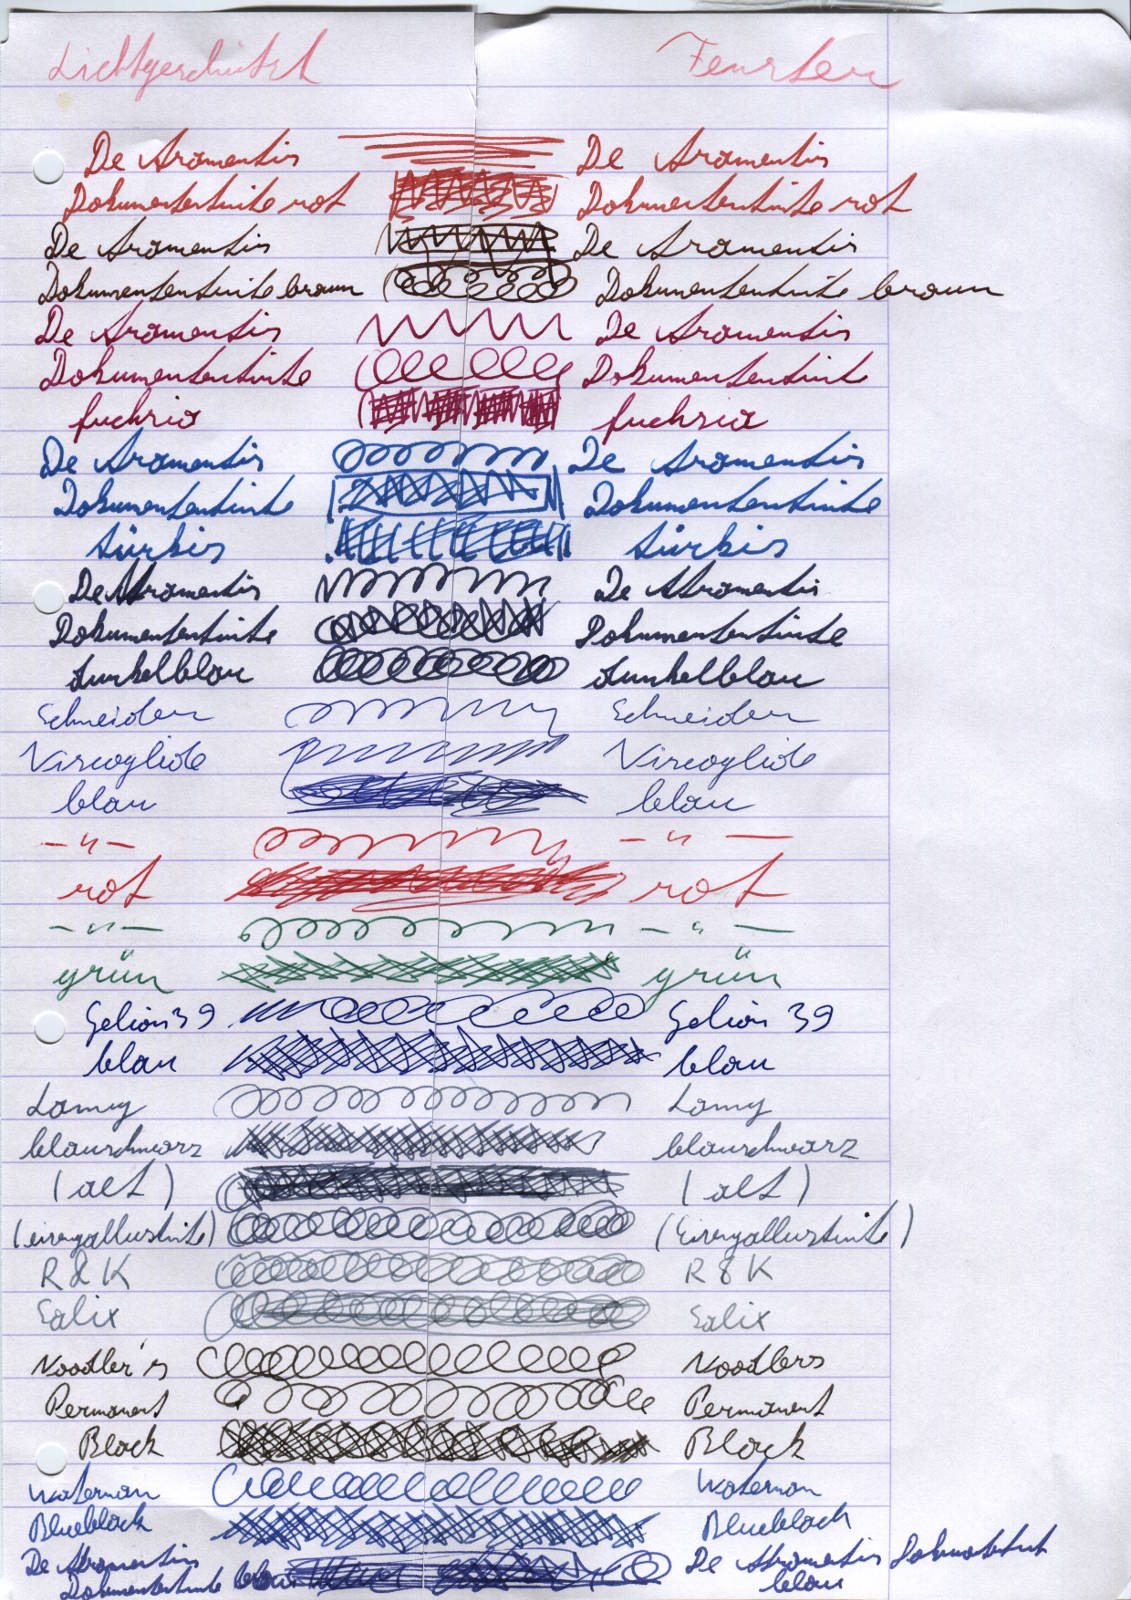 Lichtgeschützt Fenster
De Atramentis De Atramentis
Dokumententinte rot Dokumententinte rot
De Atramentis De Atramentis
Dokumententinte braun Dokumententinte braun
De Atramentis De Atramentis
Dokumententinte Dokumententinte
fuchsia fuchsia
De Atramentis De Atramentis
Dokumententinte Dokumententinte
türkis türkis
De Atramentis De Atramentis
Dokumententinte Dokumententinte
dunkelblau dunkelblau
Schneider Schneider
Viscoglide Viscoglide
blau blau
— " — — " —
rot rot
— " — — " —
grün grün
Gelion 39 Gelion 39
blau blau
Lamy Lamy
blauschwarz blauschwarz
(alt) (alt)
(eisengallustinte) (Eisengallustinte)
R & K R & K
Salix Salix
Noodler's Noodlers
Permanent Permanent
Black Black
Waterman Waterman
Blueblack Blueblack
De Atramentis De Atramentis
Dokumententinte blau blau